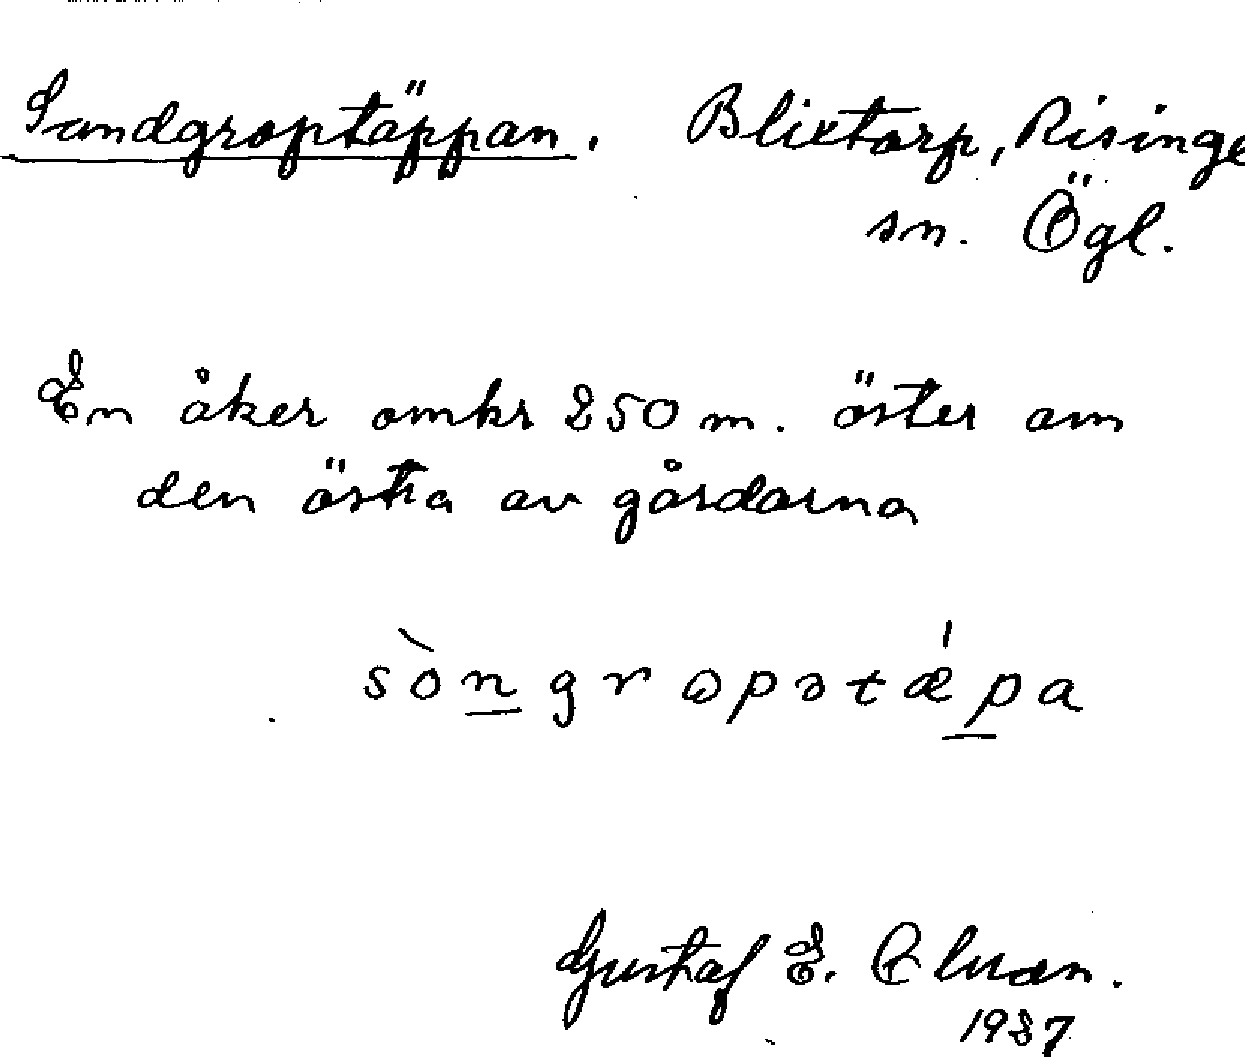 Sandgroptäppan. Blixtorp, Risinge
sn. Ögl.
En åker omkr 250 m. öster om
den östra av gårdarna
sòngropətǽpa
Gustaf E.
1937